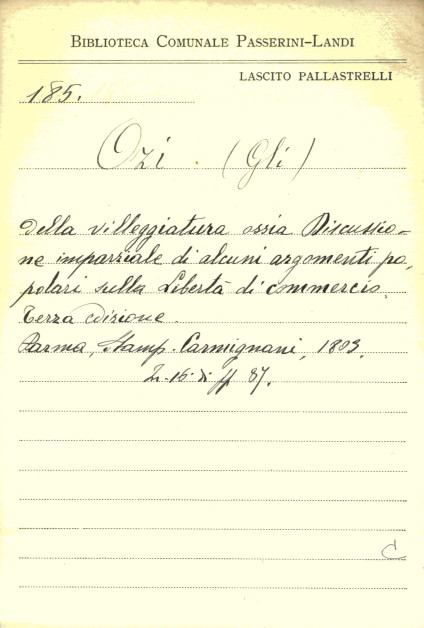 BIBLIOTECA COMUNALE PASSERINI-LANDI
LASCITO PALLASTRELLI
185.
Ozi (Gli)
della villeggiatura ossia Discussio-
ne imparziale di alcuni argomenti po-
polari sulla Libertà di commercio.
Terza edizione.
Parma, Stamp. Carmignani, 1803.
In-16. di pp 87.
C